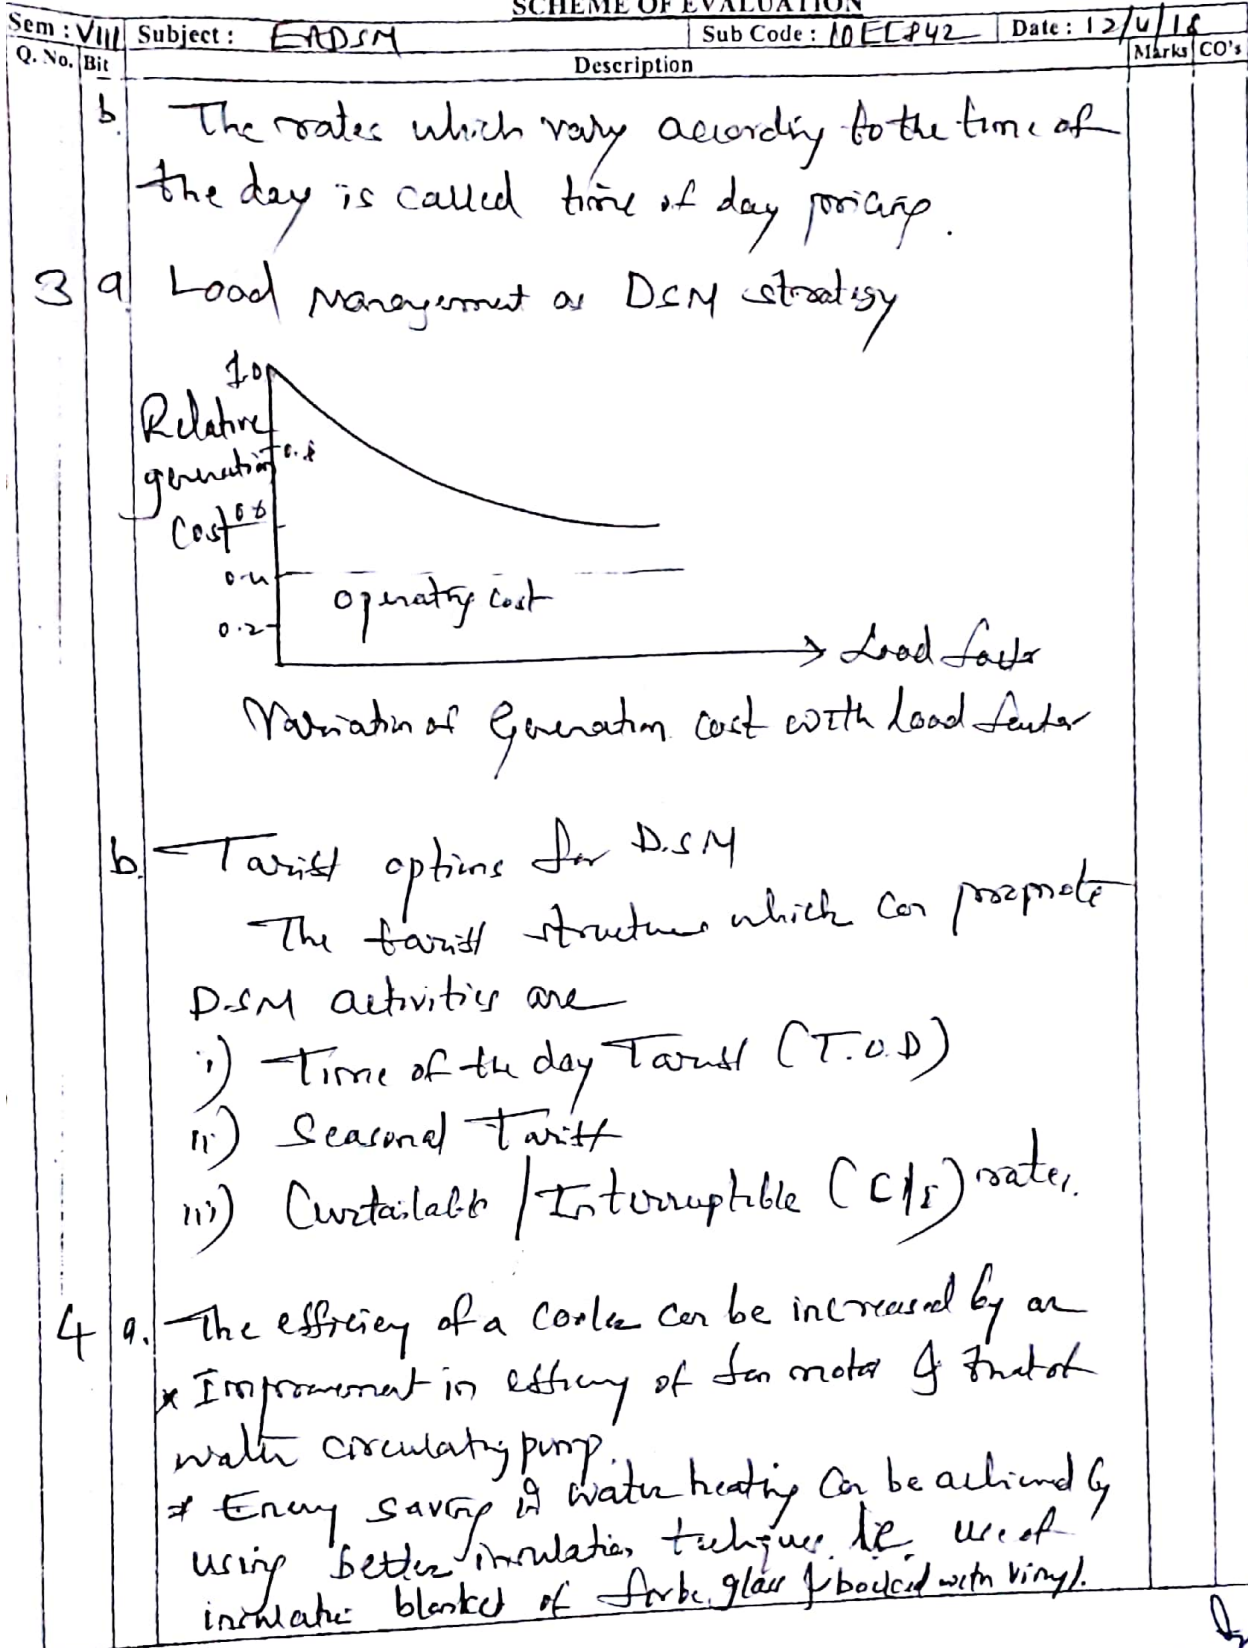 SCHEME OF EVALUATION
Sem : VIII Subject : EADSM Sub Code : 10EE842 Date : 12/4/18
Q. No. Bit Description Marks CO's
b. The rates which vary according to the time of
the day is called time of day pricing.
3 a Load Management as DSM strategy
1.0
Relative
0.8
generation
Cost 0.6
0.4
operating cost
0.2
Load factor
Variation of Generation cost with load factor
b. Tariff options for D.S.M
The tariff structure which can promote
D.S.M activities are
i) Time of the day Tariff (T.O.D)
ii) Seasonal Tariff
iii) Curtailable / Interruptible (C/I) rates.
4 a. The efficiey of a cooler can be increased by an
* Improvement in efficiency of fan motor & that of
water circulating pump.
* Energy saving in water heating can be achieved by
using better insulation techniques i.e. use of
blanket of glass & backed with vinyl.